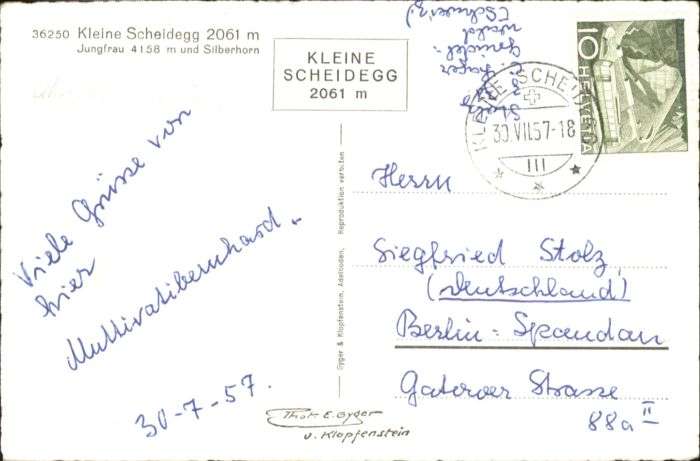 36250 Kleine Scheidegg 2061 m
Jungfrau 4158 m und Silberhorn
KLEINE
SCHEIDEGG
2061 m
Viele Grüsse von
hier
Muttivatibernhard.
30-7-57.
Stolz
Grindel-
wald
(Schweiz)
10
HELVETIA
KLEINE SCHEIDEGG
30.VII.57-18
III
Herrn
Siegfried Stolz
(Deutschland)
Berlin-Spandau
Gatower Strasse
88a II
Gyger & Klopfenstein, Adelboden. Reproduktion verboten
Phot. E. Gyger
u. Klopfenstein